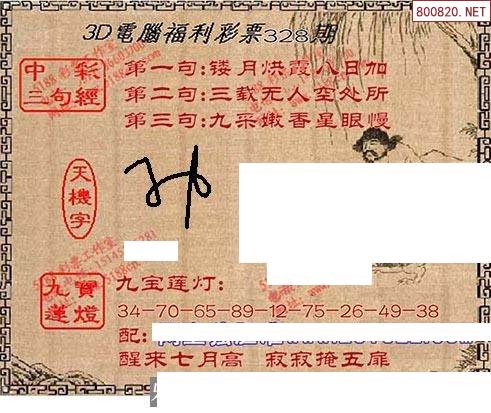 800820.NET
3D電腦福利彩票328期
中彩
三句經
第一句:镂月烘霞八日加
第二句:三载无人空处所
第三句:九采嫩香星眼慢
天機字
九寶
蓮燈
九宝莲灯:
34-70-65-89-12-75-26-49-38
配:
醒来七月高 寂寂掩五扉